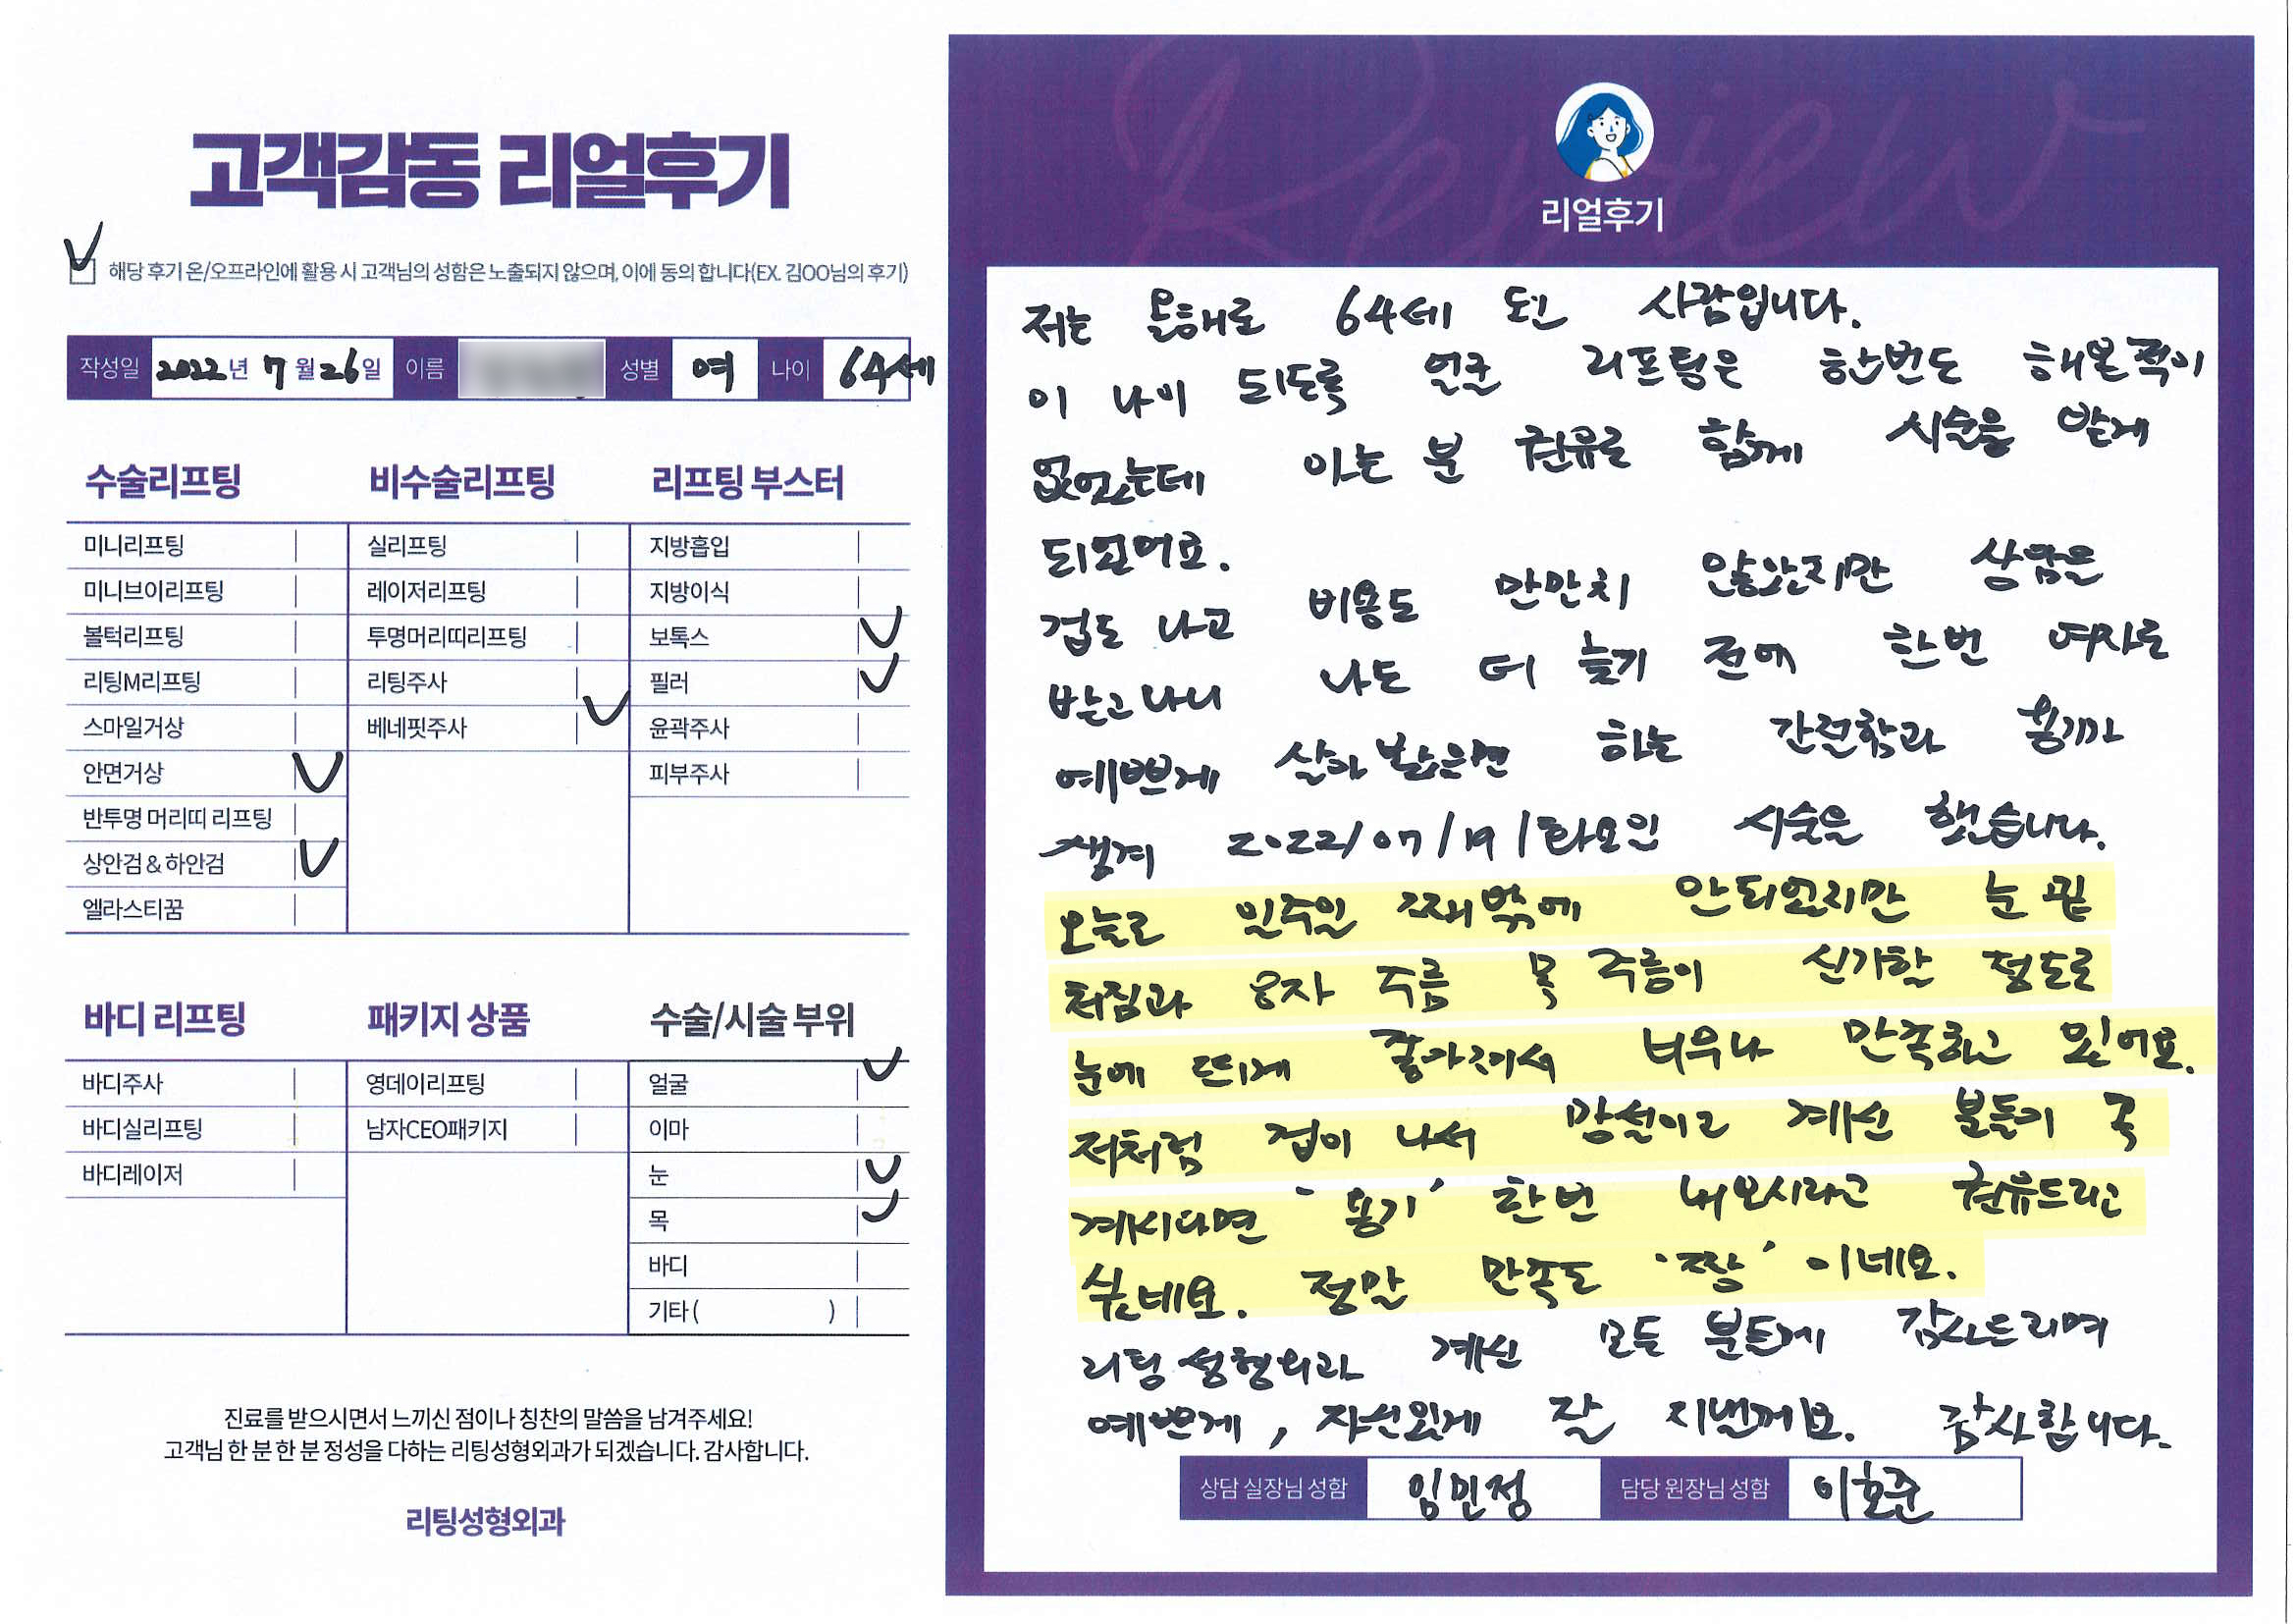 고객감동 리얼후기
해당 후기 온/오프라인에 활용 시 고객님의 성함은 노출되지 않으며, 이에 동의 합니다(EX. 김OO님의 후기)
작성일 2022년 7월 26일 이름 성별 여 나이 64세
수술리프팅
미니리프팅
미니브이리프팅
볼턱리프팅
리팅M리프팅
스마일거상
안면거상
반투명 머리띠 리프팅
상안검 & 하안검
엘라스티꿈
비수술리프팅
실리프팅
레이저리프팅
투명머리띠리프팅
리팅주사
베네핏주사
리프팅 부스터
지방흡입
지방이식
보톡스
필러
윤곽주사
피부주사
바디 리프팅
바디주사
바디실리프팅
바디레이저
패키지 상품
영데이리프팅
남자CEO패키지
수술/시술 부위
얼굴
이마
눈
목
바디
기타 ( )
진료를 받으시면서 느끼신 점이나 칭찬의 말씀을 남겨주세요!
고객님 한 분 한 분 정성을 다하는 리팅성형외과가 되겠습니다. 감사합니다.
리팅성형외과
Review
리얼후기
저는 올해로 64세 된 사람입니다.
이 나이 되도록 얼굴 리프팅은 한번도 해본적이
없었는데 아는 분 권유로 함께 시술을 받게
되었어요.
겁도 나고 비용도 만만치 않았지만 상담을
받고나니 나도 더 늙기 전에 한번 여자로
예쁘게 살아봤으면 하는 간절함과 용기가
생겨 2022/07/19/화요일 시술을 했습니다.
오늘로 일주일 째밖에 안되었지만 눈 밑
처짐과 8자 주름 목 주름이 신기할 정도로
눈에 띄게 좋아져서 너무나 만족하고 있어요.
저처럼 겁이 나서 망설이고 계신 분들이 혹
계시다면 '용기' 한번 내보시라고 권유드리고
싶네요. 정말 만족도 '짱' 이네요.
리팅성형외과 계신 모든 분들께 감사드리며
예쁘게, 자신있게 잘 지낼께요. 감사합니다.
상담 실장님 성함 임민정 담당 원장님 성함 이호준